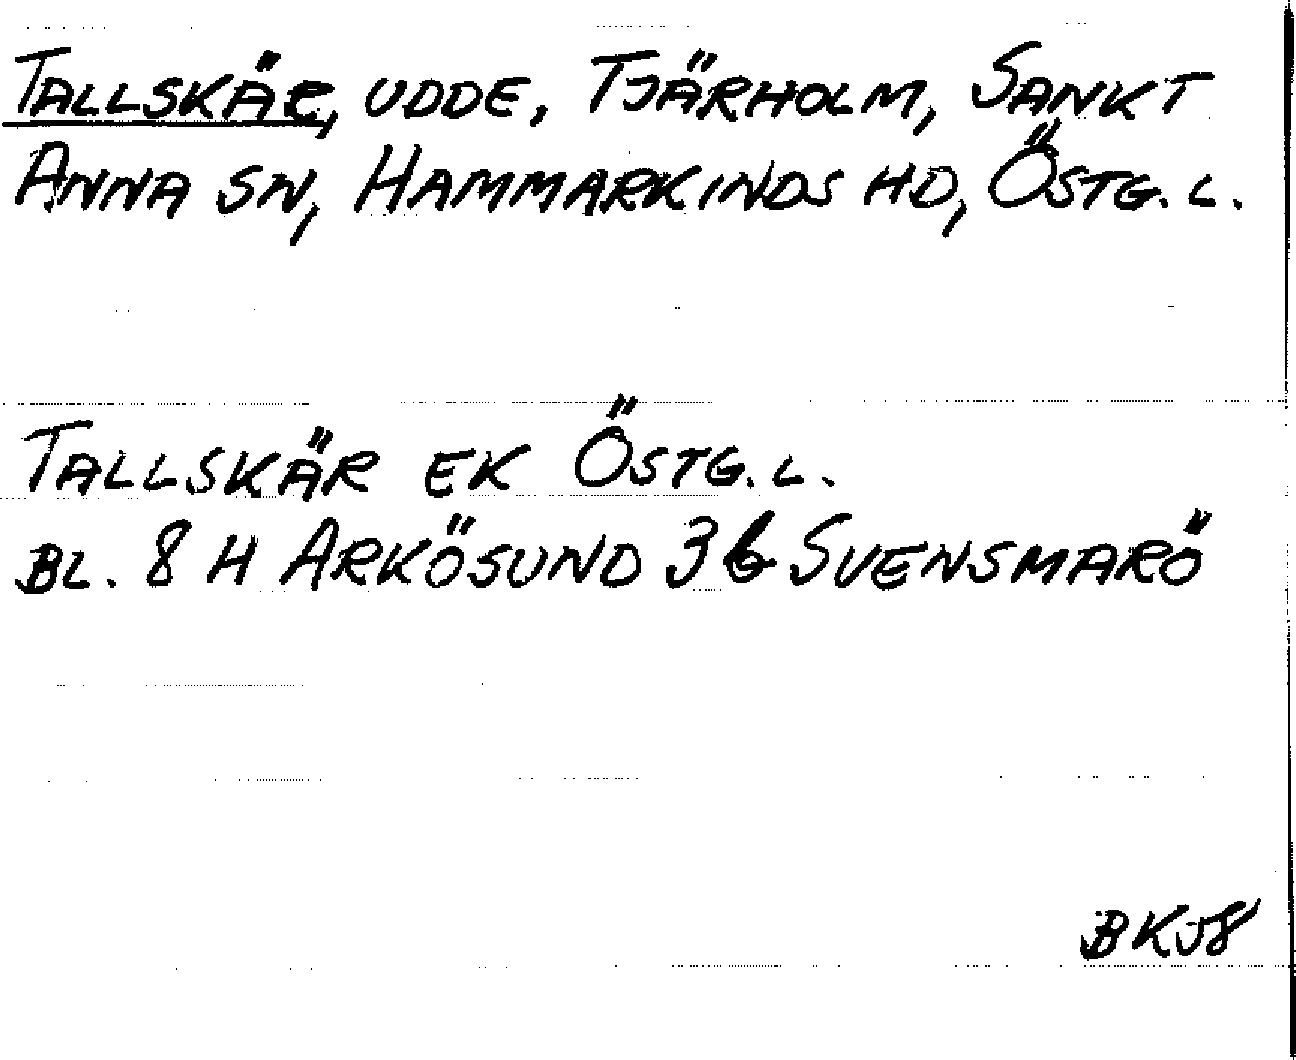 TALLSKÄR, UDDE, TJÄRHOLM, SANKT
ANNA SN, HAMMARKINDS HD, ÖSTG. L.
TALLSKÄR EK ÖSTG. L.
BL. 8 H ARKÖSUND 3 b SVENSMARÖ
BK58